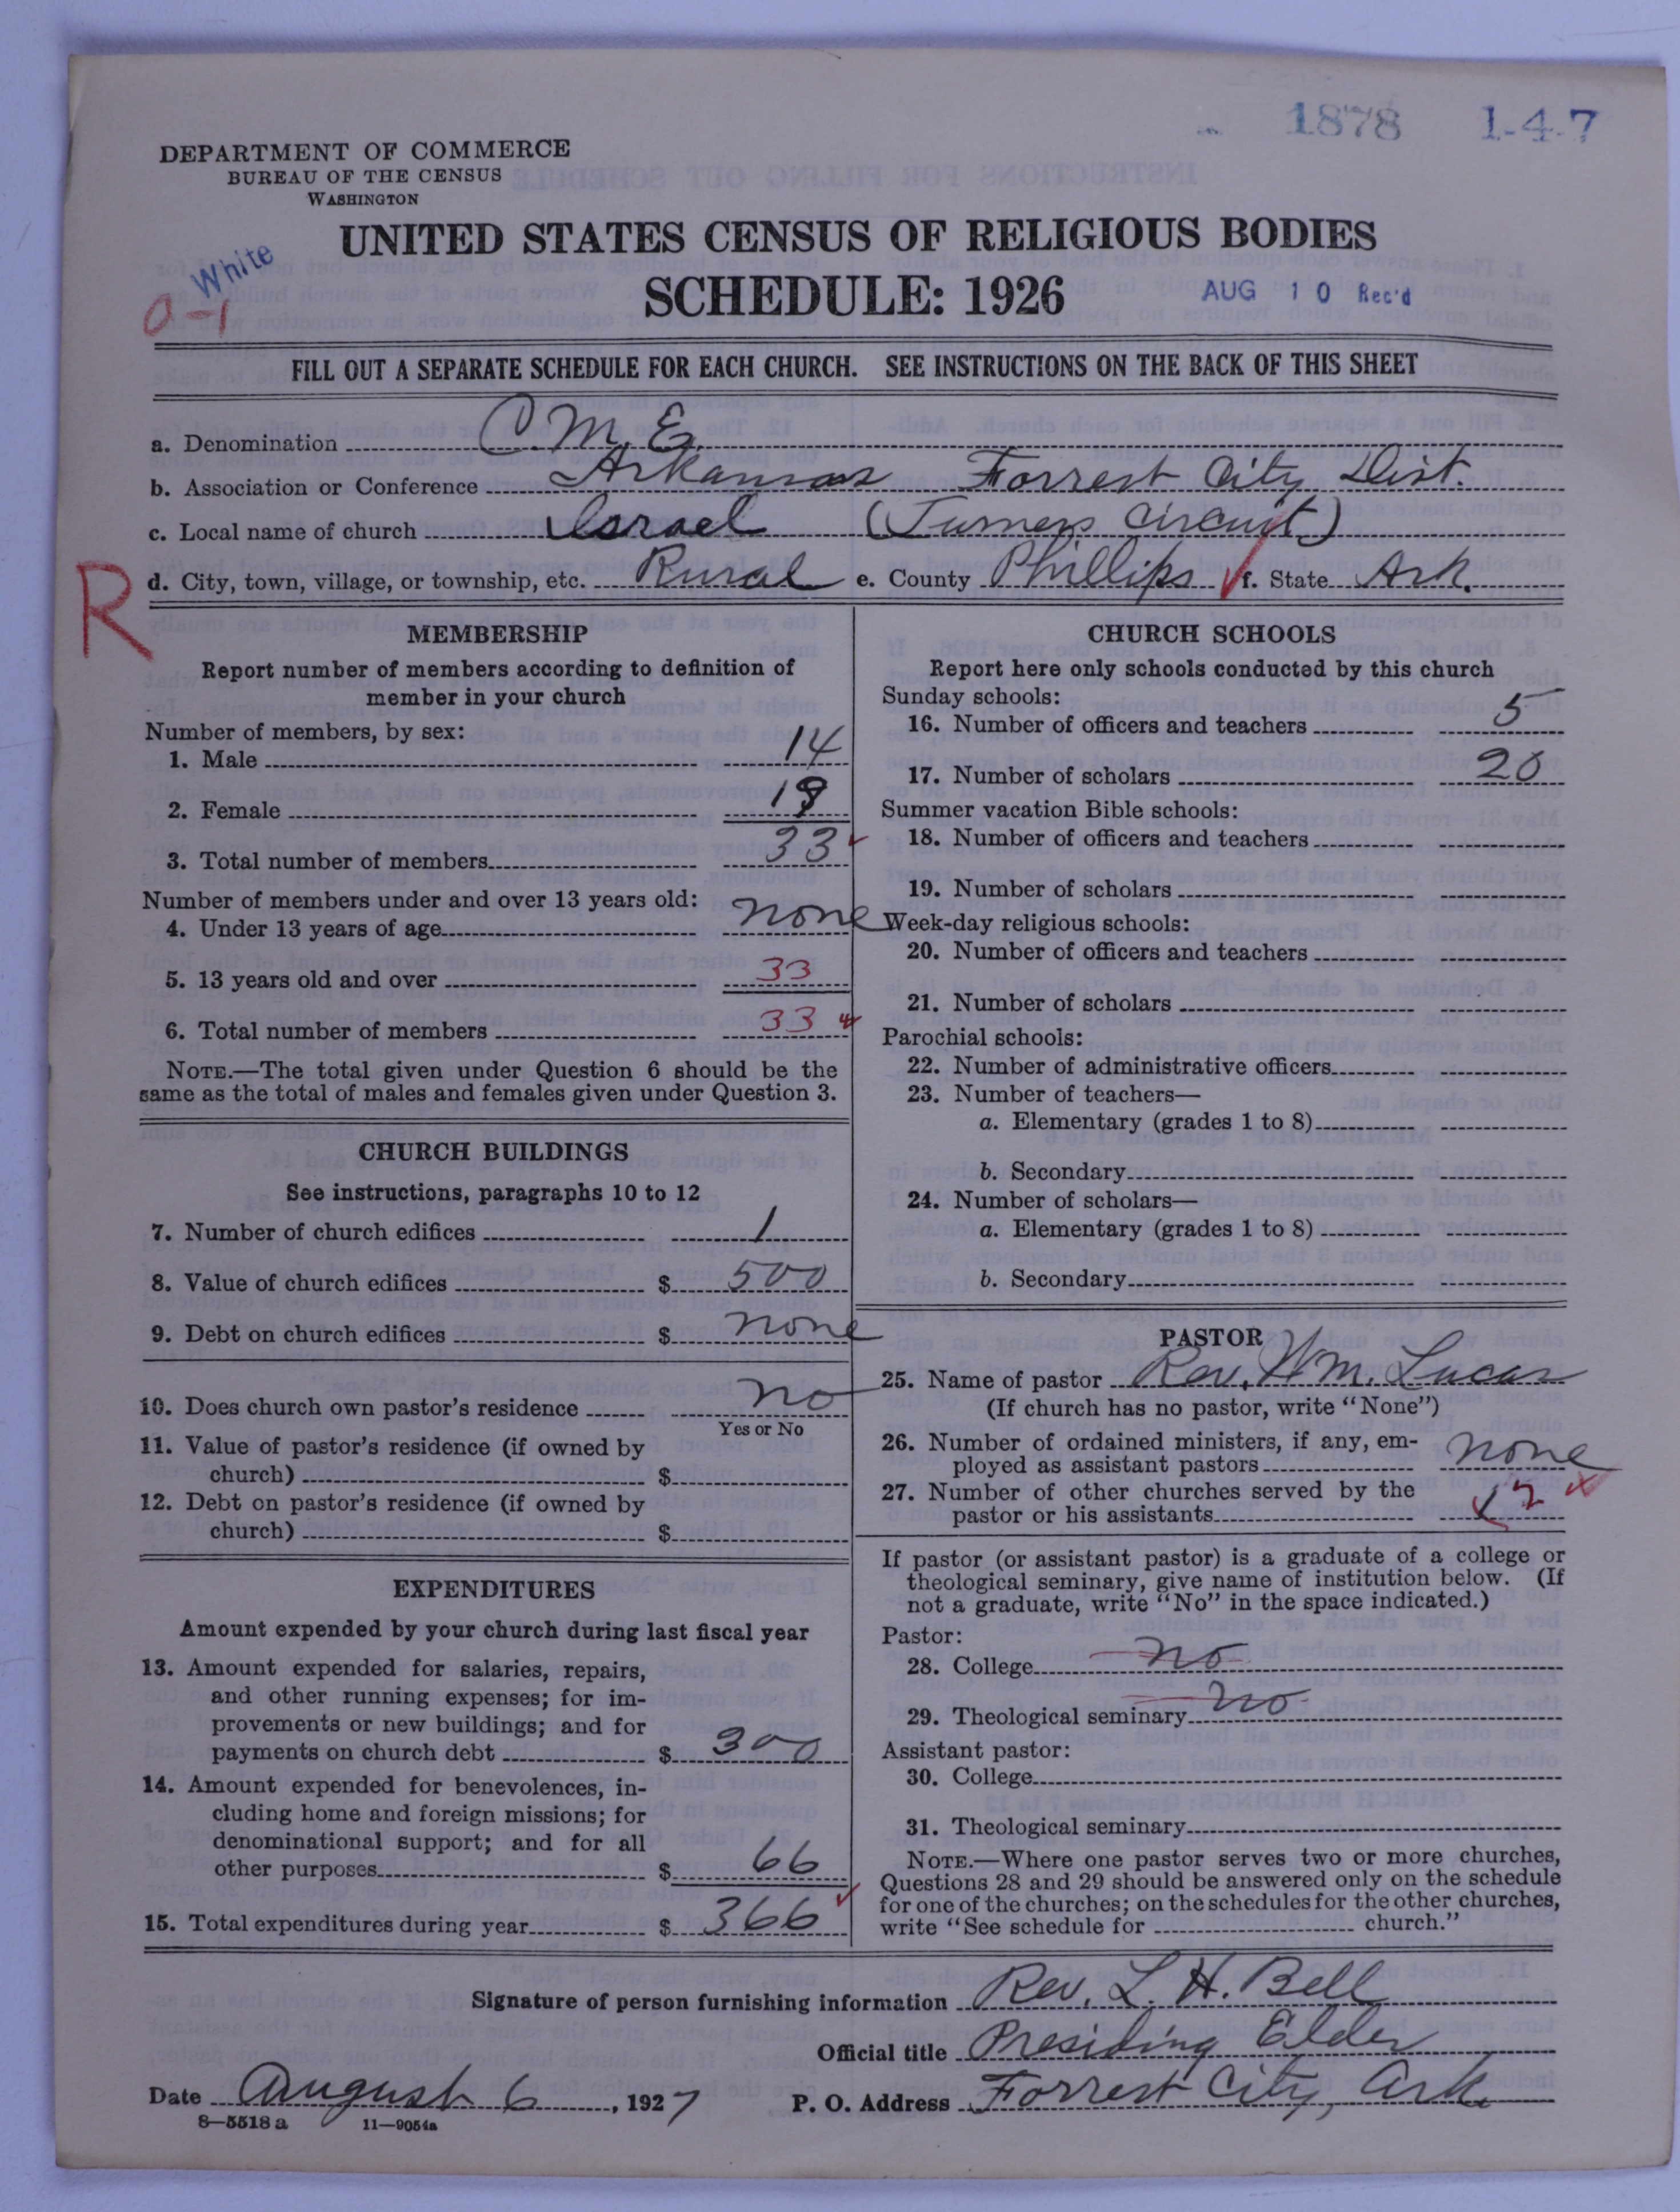 1878 1-4-7
DEPARTMENT OF COMMERCE
BUREAU OF THE CENSUS
WASHINGTON
UNITED STATES CENSUS OF RELIGIOUS BODIES
White
0-1
SCHEDULE: 1926
AUG 10 Rec'd
FILL OUT A SEPARATE SCHEDULE FOR EACH CHURCH. SEE INSTRUCTIONS ON THE BACK OF THIS SHEET
a. Denomination C.M.E.
b. Association or Conference Arkansas Forrest City Dist.
c. Local name of church Israel (Turners Circuit)
R
d. City, town, village, or township, etc. Rural e. County Phillips f. State Ark.
MEMBERSHIP
Report number of members according to definition of
member in your church
Number of members, by sex:
1. Male 14
2. Female 19
3. Total number of members 33
Number of members under and over 13 years old:
4. Under 13 years of age none
5. 13 years old and over 33
6. Total number of members 33
NOTE.—The total given under Question 6 should be the
same as the total of males and females given under Question 3.
CHURCH BUILDINGS
See instructions, paragraphs 10 to 12
7. Number of church edifices 1
8. Value of church edifices $ 500
9. Debt on church edifices $ none
10. Does church own pastor's residence no
Yes or No
11. Value of pastor's residence (if owned by
church) $
12. Debt on pastor's residence (if owned by
church) $
EXPENDITURES
Amount expended by your church during last fiscal year
13. Amount expended for salaries, repairs,
and other running expenses; for im-
provements or new buildings; and for
payments on church debt $ 300
14. Amount expended for benevolences, in-
cluding home and foreign missions; for
denominational support; and for all
other purposes $ 66
15. Total expenditures during year $ 366
CHURCH SCHOOLS
Report here only schools conducted by this church
Sunday schools:
16. Number of officers and teachers 5
17. Number of scholars 20
Summer vacation Bible schools:
18. Number of officers and teachers
19. Number of scholars
Week-day religious schools:
20. Number of officers and teachers
21. Number of scholars
Parochial schools:
22. Number of administrative officers
23. Number of teachers—
a. Elementary (grades 1 to 8)
b. Secondary
24. Number of scholars—
a. Elementary (grades 1 to 8)
b. Secondary
PASTOR
25. Name of pastor Rev. Wm. Lucas
(If church has no pastor, write "None")
26. Number of ordained ministers, if any, em-
ployed as assistant pastors none
27. Number of other churches served by the
pastor or his assistants 2
If pastor (or assistant pastor) is a graduate of a college or
theological seminary, give name of institution below. (If
not a graduate, write "No" in the space indicated.)
Pastor:
28. College no
29. Theological seminary no
Assistant pastor:
30. College
31. Theological seminary
NOTE.—Where one pastor serves two or more churches,
Questions 28 and 29 should be answered only on the schedule
for one of the churches; on the schedules for the other churches,
write "See schedule for church."
Signature of person furnishing information Rev. L. H. Bell
Official title Presiding Elder
Date August 6, 1927 P. O. Address Forrest City, Ark.
8—5518 a 11—9054a